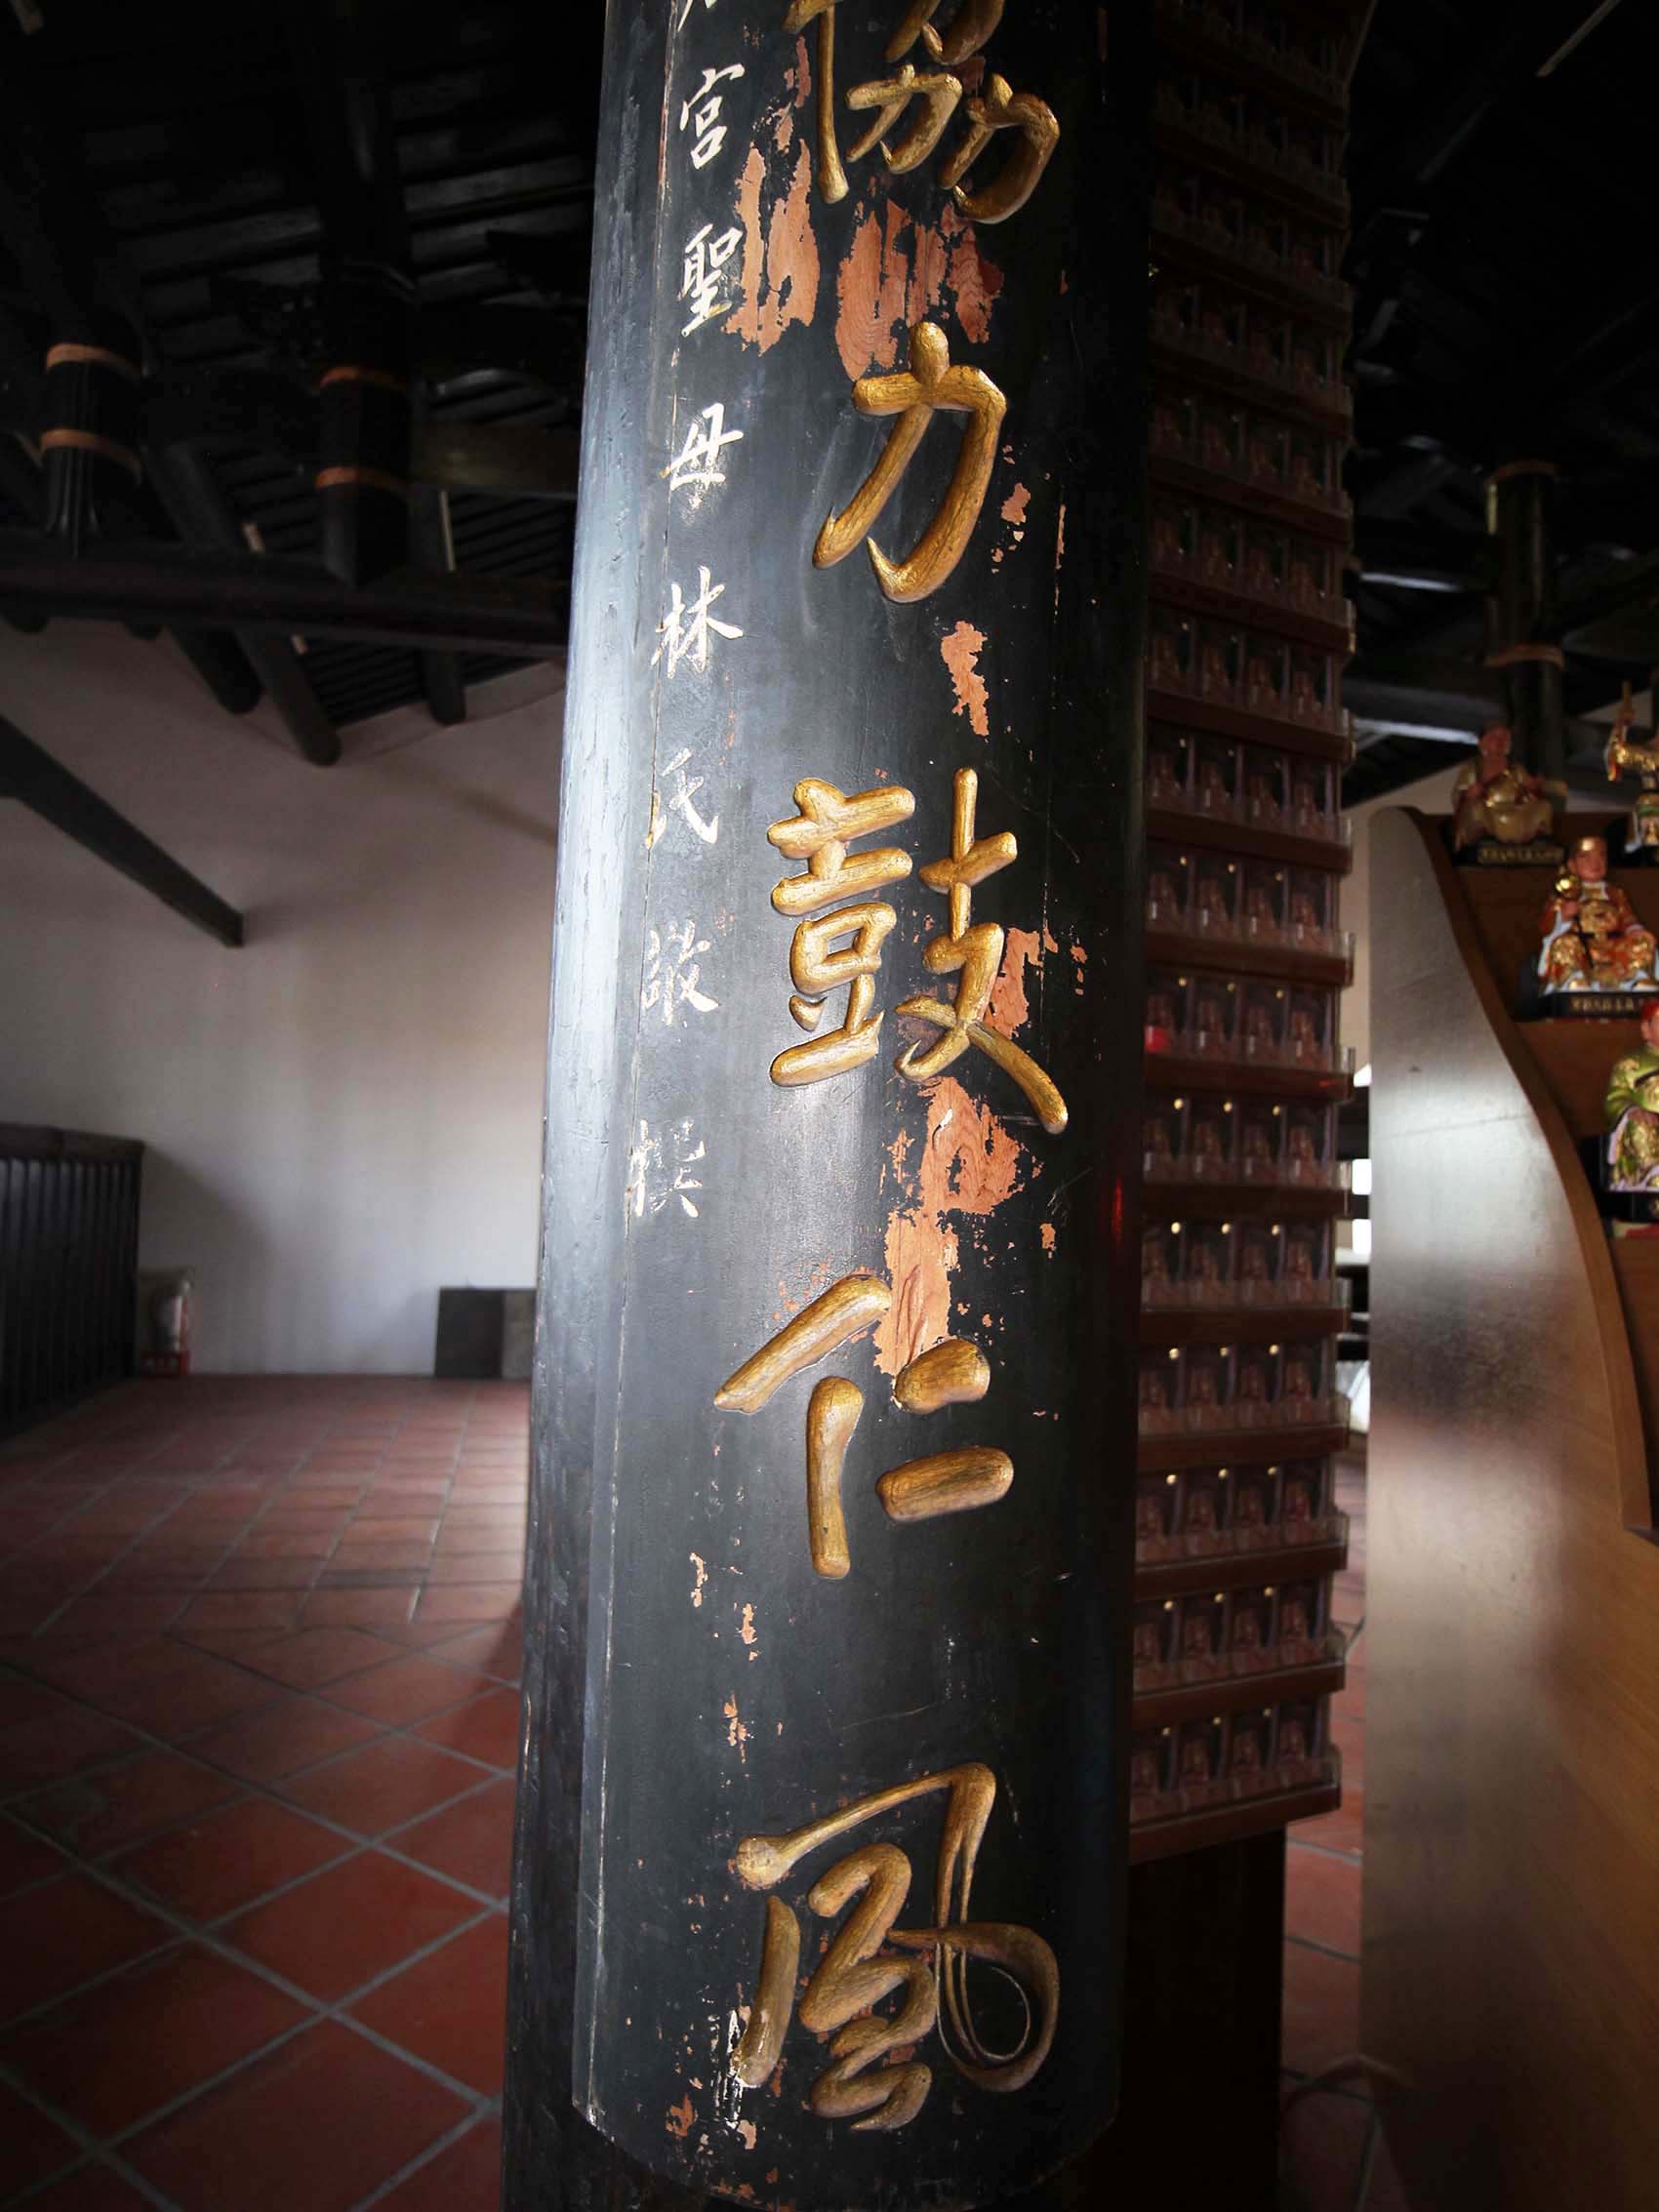 協力鼓仁風
宮聖母林氏敬撰